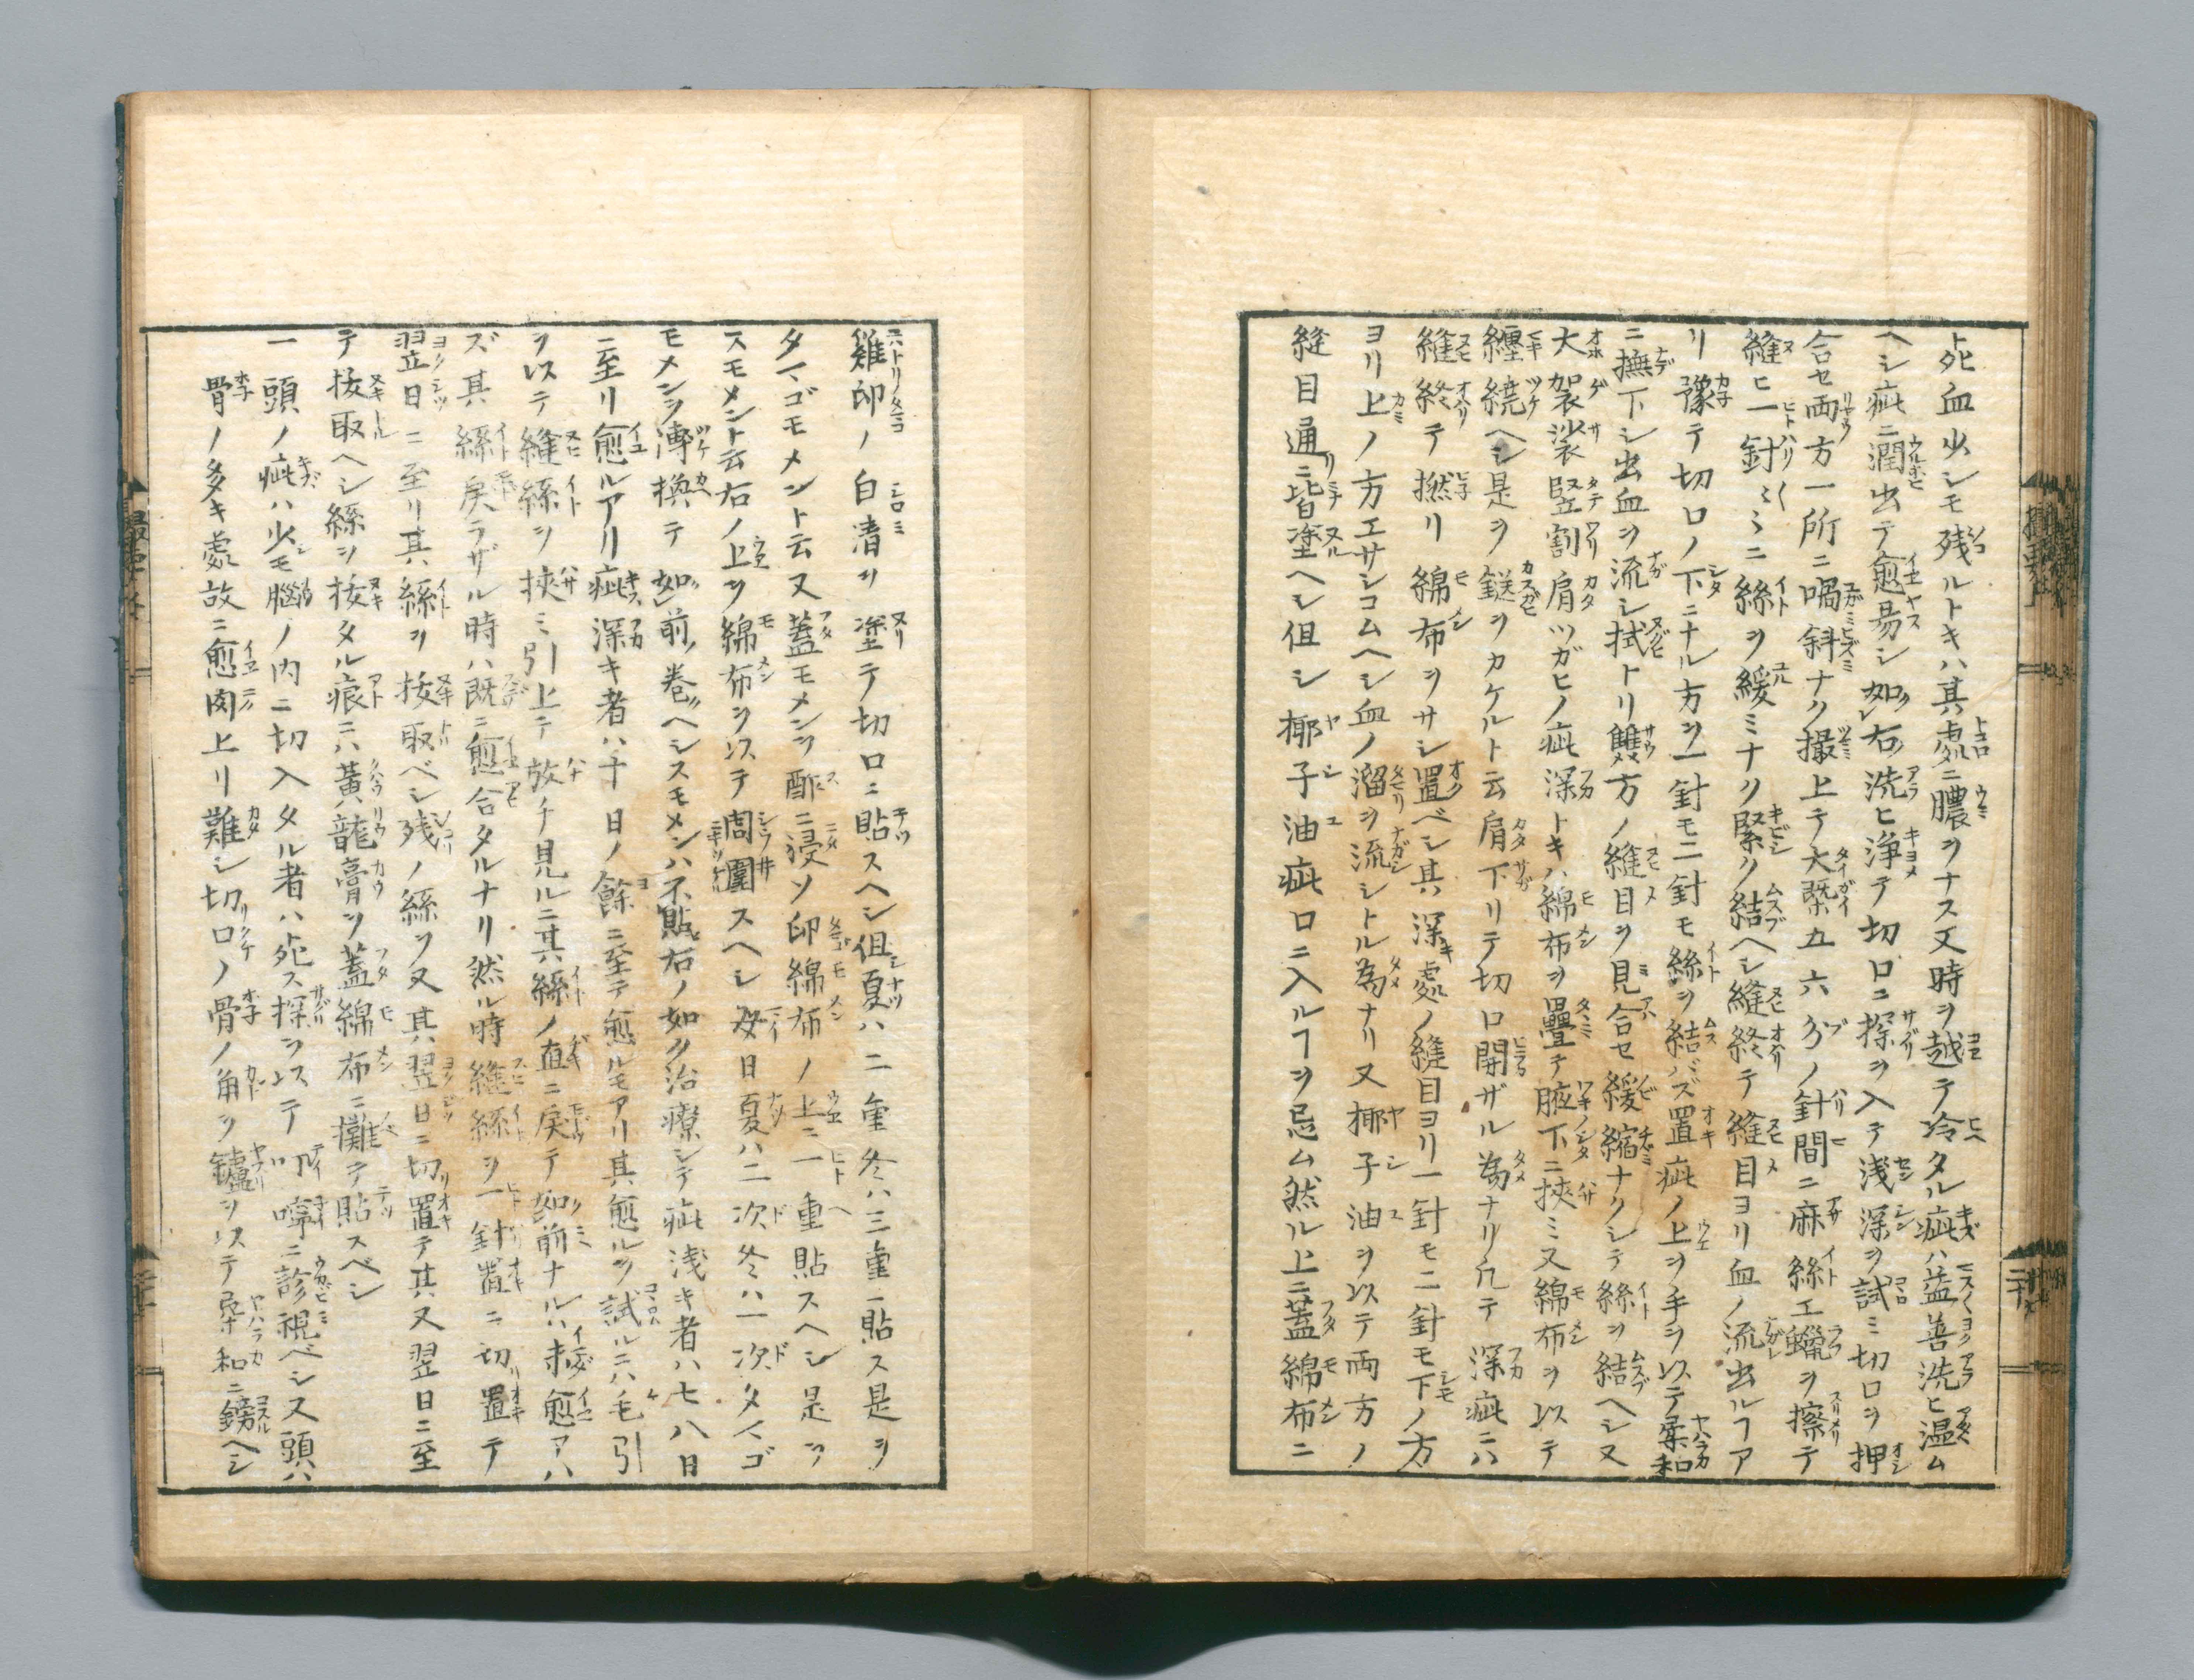 ト死血少シモ残ルトキハ其處ニ膿ヲナス又時ヲ越テ冷タル疵ハ益善洗ヒ温ム
ヘシ疵ニ潤出テ愈易シ如右洗ヒ浄テ切口ニ探ヲ入テ浅深ヲ試ミ切口ヲ押
合セ両方一所ニ喎斜ナク撮上テ大槩五六分ノ針間ニ麻絲エ蠟ヲ擦テ
縫ヒ一針〻〻ニ絲ヲ緩ミナク緊ク結ヘシ縫終テ縫目ヨリ血ノ流出ルヿア
リ豫テ切口ノ下ニナル方ヲ一針モ二針モ絲ヲ結バズ置疵ノ上ヲ手ヲ以テ柔和
ニ撫下シ出血ヲ流シ拭トリ雙方ノ縫目ヲ見合セ緩縮ナクシテ絲ヲ結ヘシ又
大袈裟竪割肩ツガヒノ疵深トキハ綿布ヲ疊テ腋下ニ挾ミ又綿布ヲ以テ
纒繞ヘシ是ヲ鎹ヲカケルト云肩下リテ切口開ザル為ナリ凢テ深疵ニハ
縫終テ撚リ綿布ヲサシ置ベシ其深處ノ縫目ヨリ一針モ二針モ下ノ方
ヨリ上ノ方エサシコムヘシ血ノ溜ヲ流シトル為ナリ又椰子油ヲ以テ両方ノ
縫目通ニ皆塗ヘシ但シ椰子油疵口ニ入ルヿヲ忌ム然ル上ニ蓋綿布ニ
雞卵ノ白清ヲ塗テ切口ニ貼スヘシ但夏ハ二重冬ハ三重貼ス是ヲ
タマゴモメント云又蓋モメンヲ酢ニ浸ソ卵綿布ノ上ニ一重貼スヘシ是ヲ
スモメント云右ノ上ヲ綿布ヲ以テ周圍スヘシ毎日夏ハ二次冬ハ一次タマゴ
モメンヲ傅換テ如前巻ヘシスモメンハ不貼右ノ如ク治療シテ疵浅キ者ハ七八日
ニ至リ愈ルアリ疵深キ者ハ十日ノ餘ニ至テ愈ルモアリ其愈ルヲ試ルニハ毛引
ヲ以テ縫絲ヲ挾ミ引上テ放チ見ルニ其絲ノ直ニ戻テ如前ナルハ未愈アハ
ズ其絲戻ラザル時ハ既ニ愈合タルナリ然ル時縫絲ヲ一針置ニ切置テ
翌日ニ至リ其絲ヲ拔取ベシ残ノ絲ヲ又其翌日ニ切置テ其又翌日ニ至
テ拔取ヘシ絲ヲ拔タル痕ニハ黄龍膏ヲ蓋綿布ニ攤テ貼スベシ
一頭ノ疵ハ少モ腦ノ内ニ切入タル者ハ死ス探ヲ以テ叮嚀ニ診視ベシ又頭ハ
骨ノ多キ處故ニ愈肉上リ難シ切口ノ骨ノ角ヲ鑢ヲ以テ柔和ニ鎊ヘシ